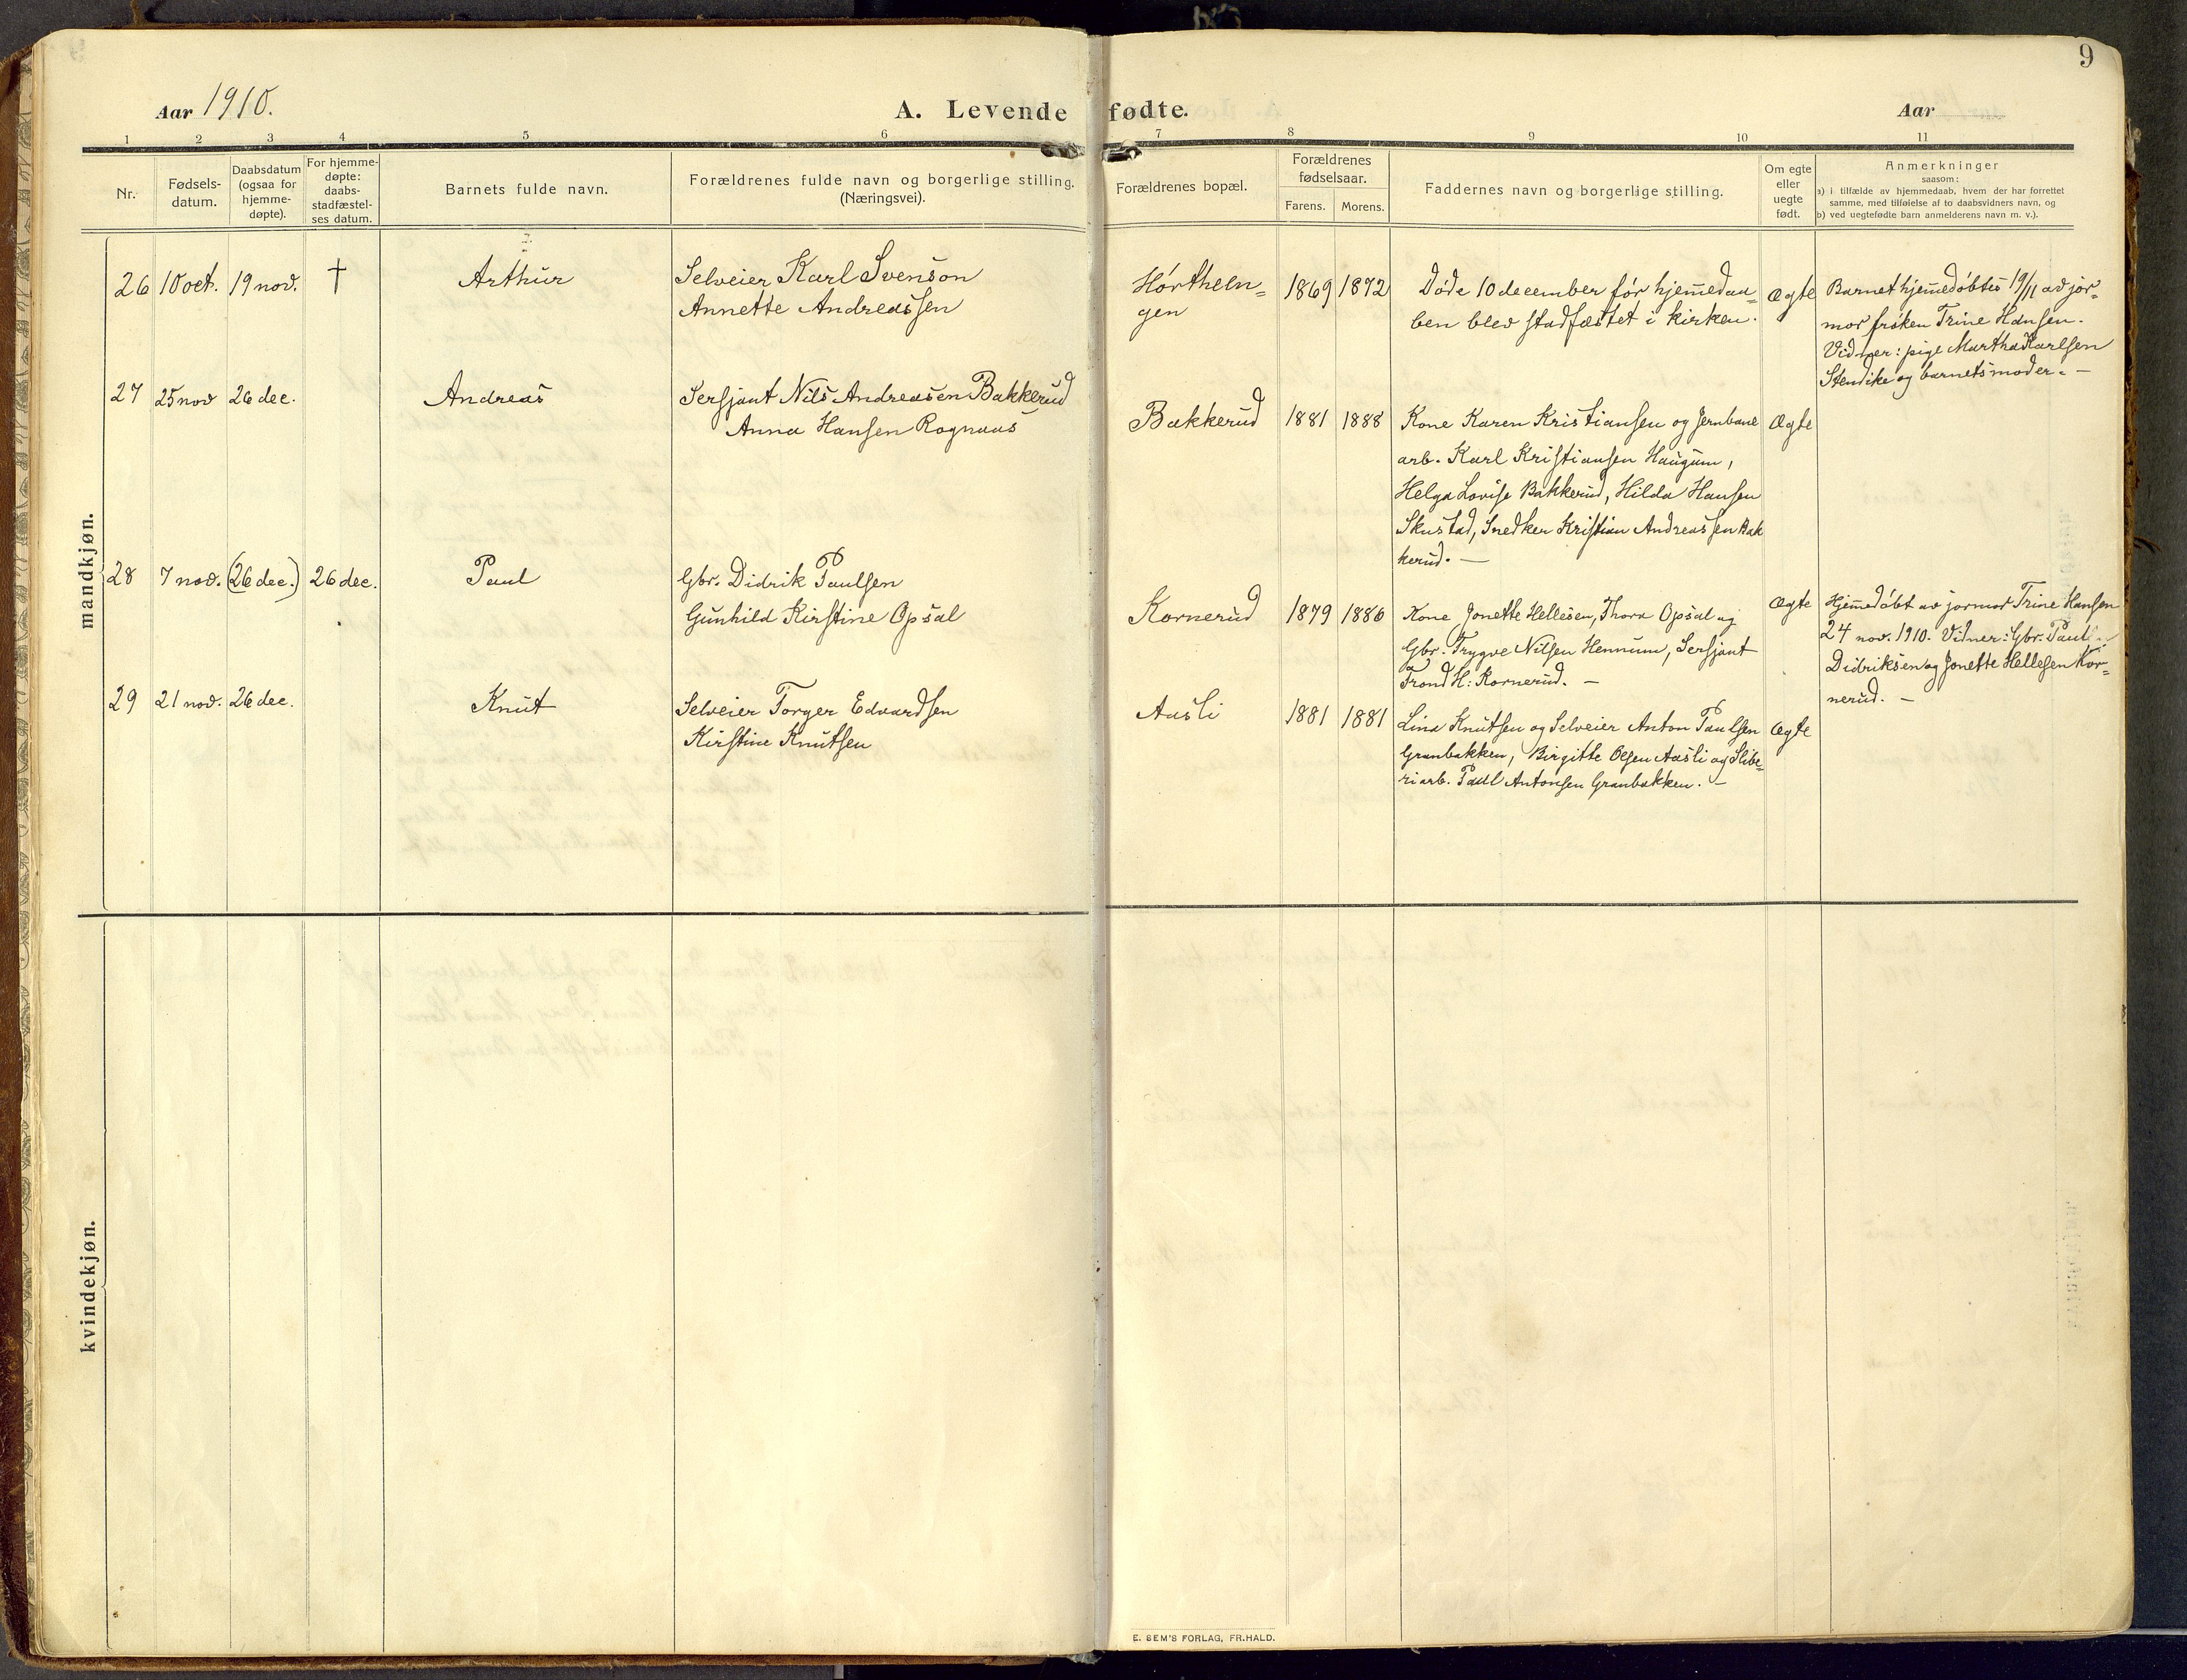 9
Aar 1910.
A. Levende fødte.
Aar
1 2 3 4 5 6 7 8 9 10 11
Nr.
Fødsels-
datum.
Daabsdatum
(ogsaa for
hjemme-
døpte).
For hjemme-
døpte:
daabs-
stadfæstel-
ses datum.
Barnets fulde navn.
Forældrenes fulde navn og borgerlige stilling.
(Næringsvei).
Forældrenes bopæl.
Forældrenes
fødselsaar.
Farens. Morens.
Faddernes navn og borgerlige stilling.
Om egte
eller
uegte
født.
Anmerkninger
saasom:
a) i tilfælde av hjemmedaab, hvem der har forrettet
samme, med tilføielse af to daabsvidners navn, og
b) ved uegtefødte barn anmelderens navn m. v.).
mandkjøn.
26 10 oct. 19 nov. † Arthur
Selveier Karl Svenson
Annette Andreassen
Hørtheln=
gen
1869 1872
Døde 10 december før hjemedaa=
ben blev stadfæstet i kirken.
Ægte
Barnet hjemedøbtes 19/11 av jor=
mor frøken Trine Hansen.
Vidner: pige Martha Karlsen
Stendike og barnets moder. —
27 25 nov 26 dec. Andreas
Sersjant Nils Andreasen Bakkerud
Anna Hansen Rognaas
Bakkerud 1881 1888
Kone Karen Kristiansen og Jernbane
arb. Karl Kristiansen Haugum,
Helga Lovise Bakkerud, Hilda Hansen
Skustad, Snedker Kristian Andreassen Bak
kerud. —
Ægte
28 7 nov. (26 dec.) 26 dec. Paul
Gbr. Didrik Paulsen
Gunhild Kirstine Opsal
Kornerud 1879 1886
Kone Jonette Hellesen, Thora Opsal og
Gbr. Trygve Nilsen Hennum, Sersjant
Trond H. Kornerud. —
Ægte
Hjemedøbt av jormor Trine Hansen
24 nov. 1910. Vidner: Gbr. Paul
Didriksen og Jonette Hellesen Kor=
nerud. —
29 21 nov. 26 dec. Knut
Selveier Torger Edvardsen
Kirstine Knutsen
Aasli 1881 1881
Lina Knutsen og Selveier Anton Paulsen
Granbakken, Birgitte Olsen Aasli og Slibe=
riarb. Paul Antonsen Granbakken. —
Ægte
kvindekjøn.
E. SEM'S FORLAG, FR.HALD.